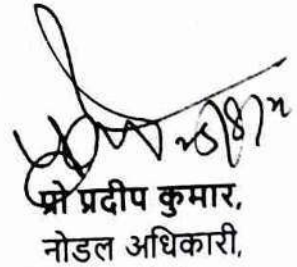 प्रो प्रदीप कुमार,
नोडल अधिकारी,